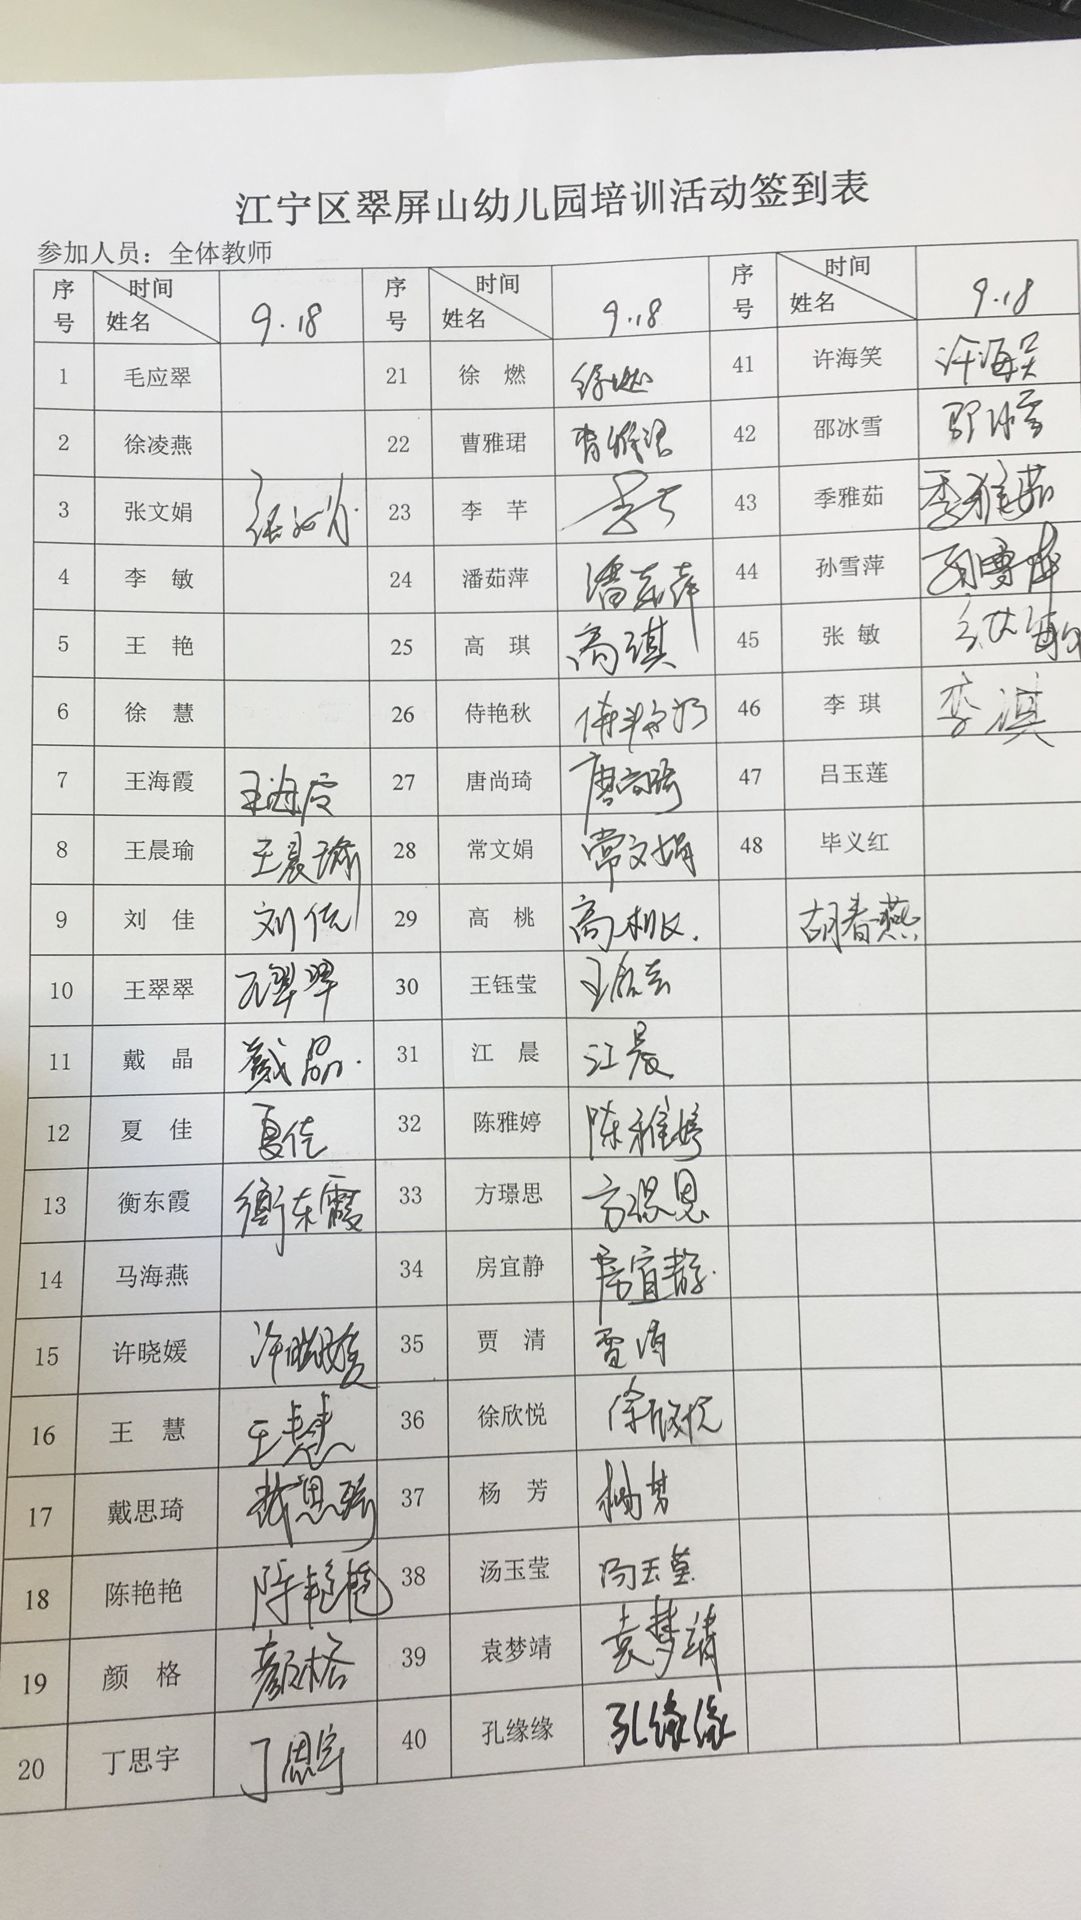 江宁区翠屏山幼儿园培训活动签到表
参加人员：全体教师
序号 时间 姓名 9.18 序号 时间 姓名 9.18 序号 时间 姓名 9.18
1 毛应翠 21 徐燃 徐燃 41 许海笑 许海笑
2 徐凌燕 22 曹雅珺 曹雅珺 42 邵冰雪 邵冰雪
3 张文娟 张文娟 23 李芊 李芊 43 季雅茹 季雅茹
4 李敏 24 潘茹萍 潘茹萍 44 孙雪萍 孙雪萍
5 王艳 25 高琪 高琪 45 张敏 张敏
6 徐慧 26 侍艳秋 侍艳秋 46 李琪 李淇
7 王海霞 王海霞 27 唐尚琦 唐尚琦 47 吕玉莲
8 王晨瑜 王晨瑜 28 常文娟 常文娟 48 毕义红
9 刘佳 刘佳 29 高桃 高桃 胡春燕
10 王翠翠 王翠翠 30 王钰莹 王钰莹
11 戴晶 戴晶 31 江晨 江晨
12 夏佳 夏佳 32 陈雅婷 陈雅婷
13 衡东霞 衡东霞 33 方璟思 方璟思
14 马海燕 34 房宜静 房宜静
15 许晓媛 许晓媛 35 贾清 贾清
16 王慧 王慧 36 徐欣悦 徐欣悦
17 戴思琦 戴思琦 37 杨芳 杨芳
18 陈艳艳 陈艳艳 38 汤玉莹 汤玉莹
19 颜格 颜格 39 袁梦靖 袁梦靖
20 丁思宇 丁思宇 40 孔缘缘 孔缘缘